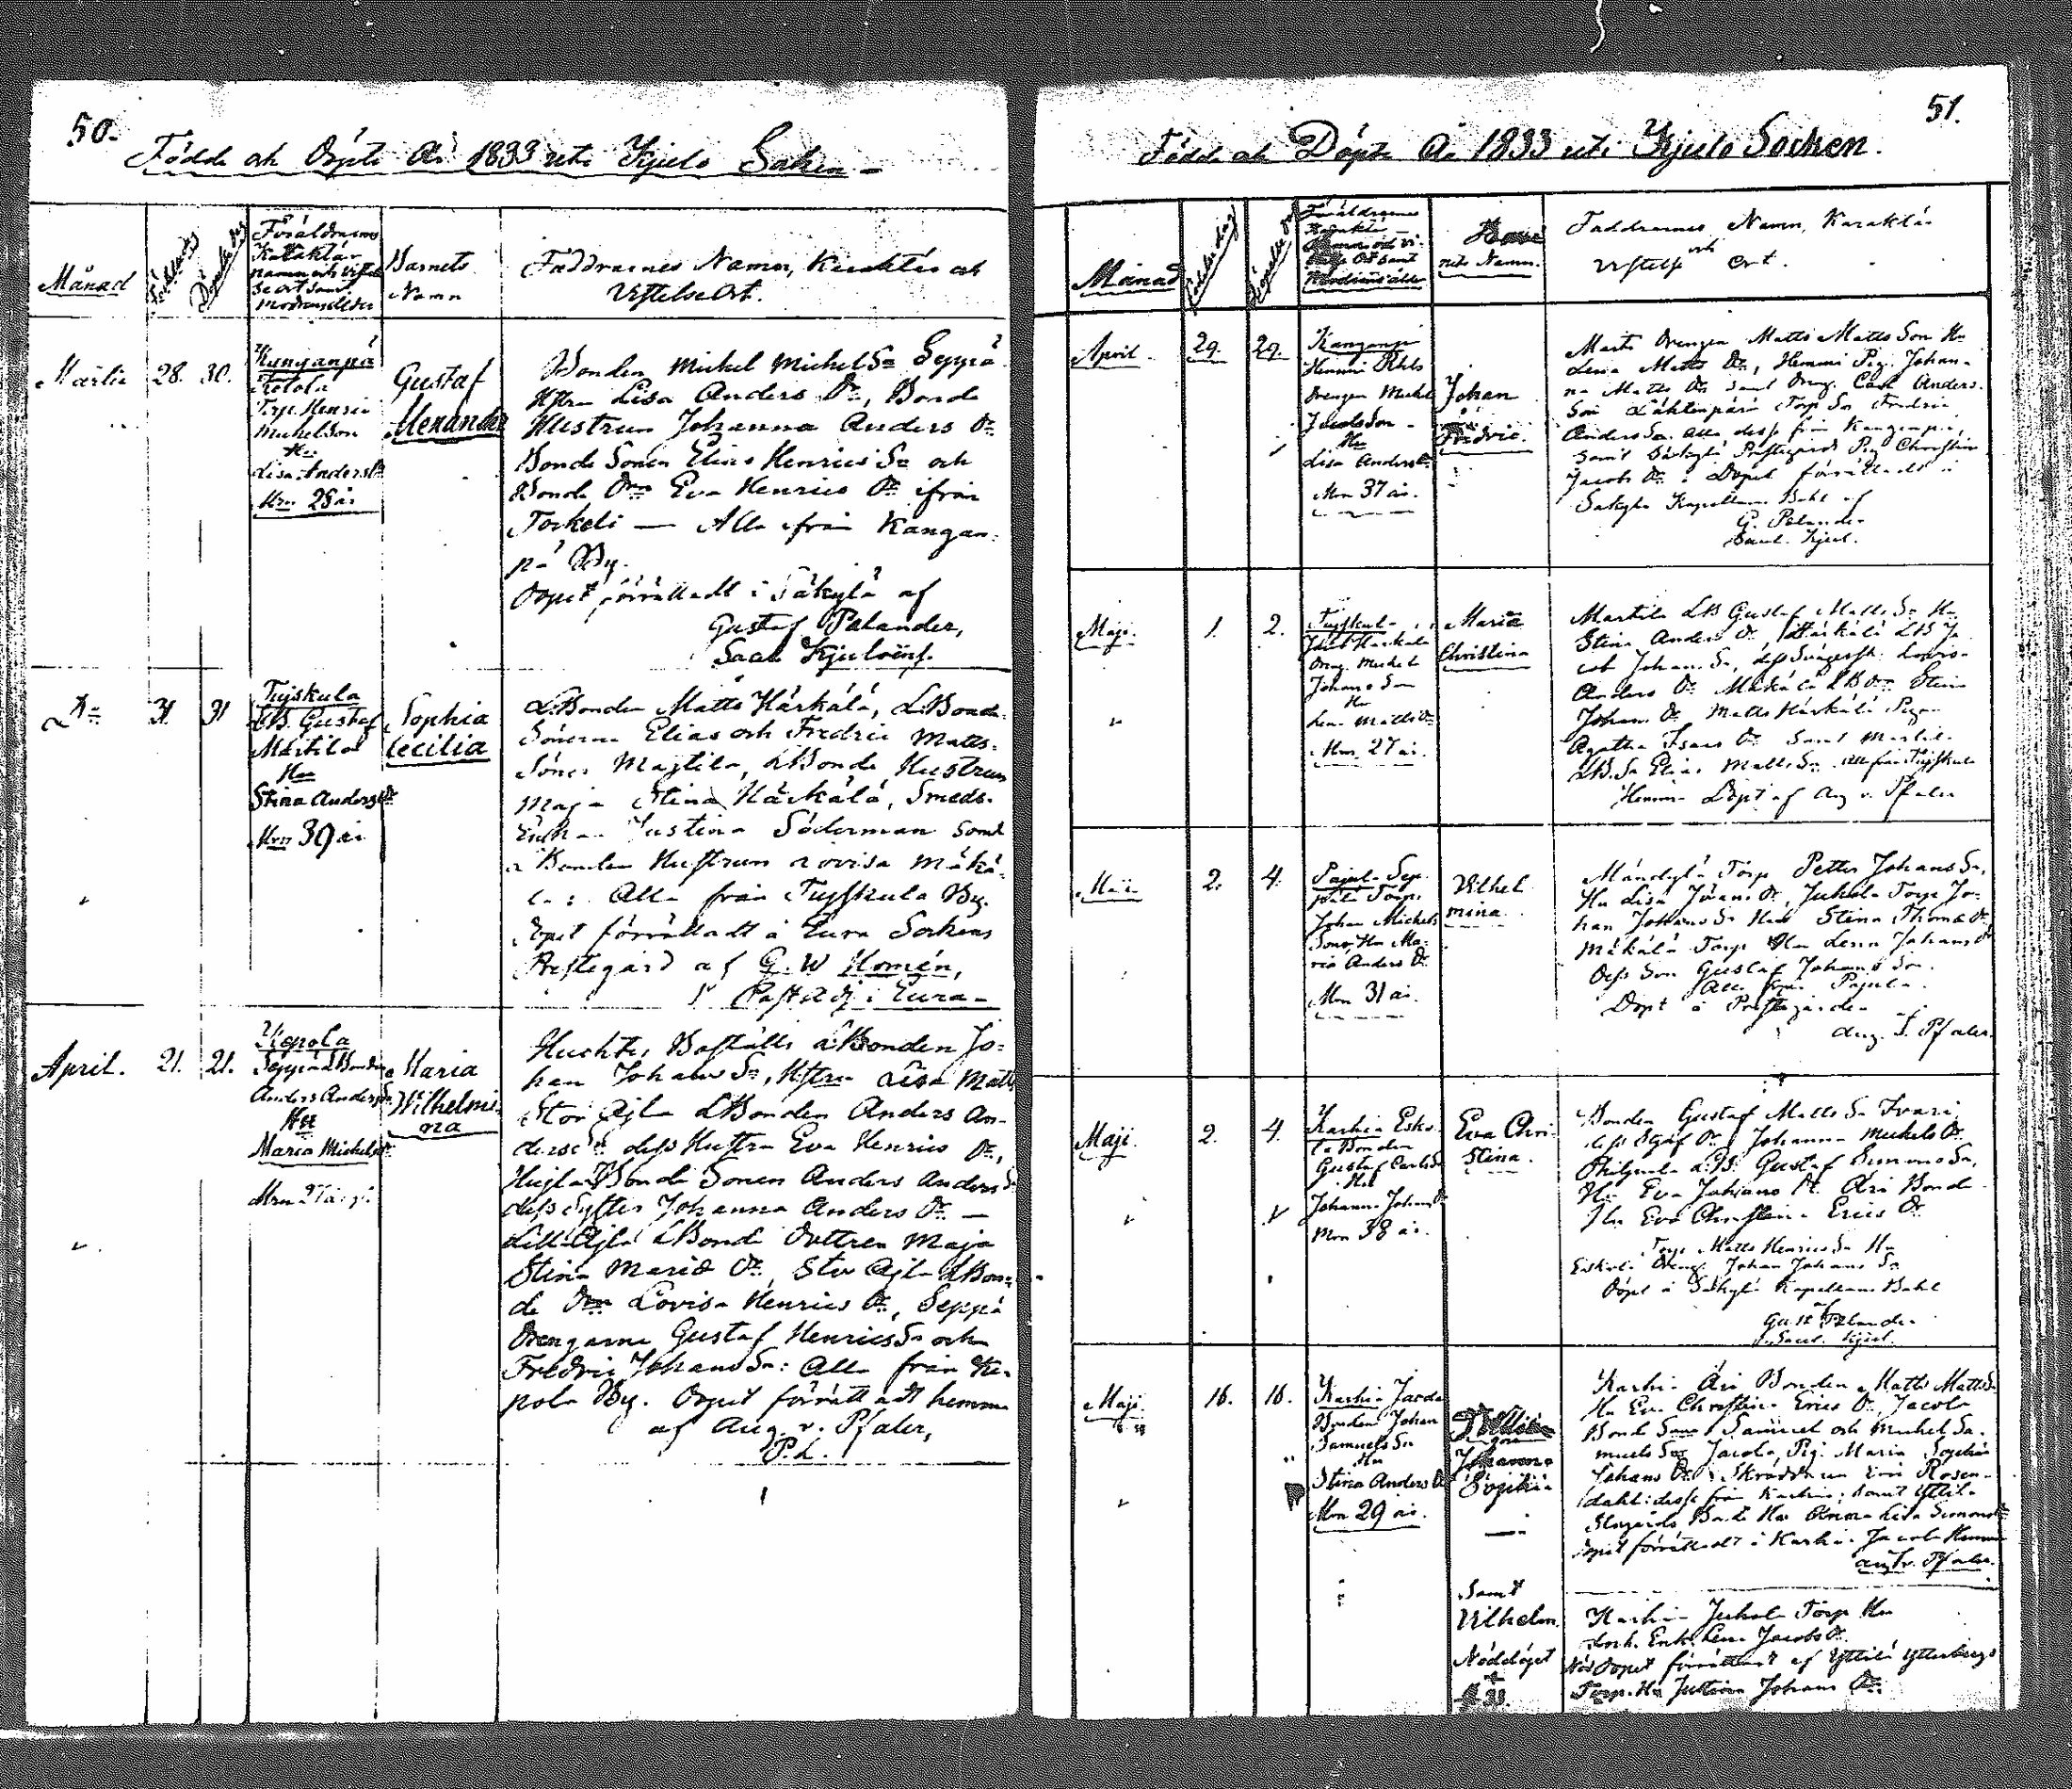 50.
Födde och Döpte År 1833 uti Kjulo Socken
Månad
Födelse dag
Döpelse dag
Föräldrarnes
Karaktär
namn och vistel
se ort samt
modrens ålder
Barnets
Namn
Faddrarnes Namn, Karaktär och
VistelseOrt.
Martii 28. 30.
Kanganpä
Torp. Henric
Michelson
Hu
Lisa Anders Dr
Mrn 28 år
Gustaf
Alexander
Bonden Michel Michels Sn Seppä
Htru Lisa Anders Dr, Bonde
Hustrun Johanna Anders Dr
Bonde Sonen Elias Henrics Sn och
Bonde Drn Eva Henrics Dr ifrån
Torkeli — Alla från Kangan-
pä By.
Dopet förrättadt i Säkylä af
Gustaf Palander,
Sac. Kjuloëns.
Do 31 31
Tujskula
LB. Gustaf
Martila
Hu
Stina Anders Dr
Mrn 39 år
Sophia
Cecilia
L.Bonden Matts Härkälä, L.Bonde
Sönerna Elias och Fredric Matts-
Söner Martila, LBonde Hustrun
Maja Stina Härkälä, Smeds-
Enkan Justina Söderman samt
Bonden Hustrun Lovisa Mäkä-
lä: Alla från Tujskula By.
Dopet förrättadt å Eura Sockens
Prestegård af G. W Homén,
Past. Adj. i Eura-
April. 21. 21.
Kepola
Seppä LBonden
Anders Anders Sn
Hu
Maria Michels Dr
Mrn 27 år
Maria
Wilhelmi-
na
Huchtis Boställs LBonden Jo-
han Johans Sn, Hstru Lisa Matts
Stor Äjlä LBonden Anders An-
ders Sn dess Hustru Eva Henrics Dr,
Bonde Sonen Anders Anders Sn
dess Syster Johanna Anders Dr —
Lill Äjlä LBonde Dottren Maja
Stina Maria Dr, Stor Äjlä LBon-
de Drn Lovisa Henrics Dr, Seppä
Drengarne Gustaf Henrics Sn och
Fredric Johans Sn: Alla från Ke-
pola By. Dopet förrättadt hemma
af Aug. v. Pfaler,
P.L.
51.
Födde och Döpte År 1833 uti Kjulo Socken.
Månad
Födelse dag
Föräldrarnes
Modrens ålder
nets Namn.
Faddrarnes Namn, Karaktär
och
Vistelse Ort.
April. 29. 29.
Kanganpä
Hemmi Rhls
Drengen Michel
Jacobs Son
Hu
Lisa Anders Dr
Mrn 37 år.
Johan
Fredric.
Drengen Matts Matts Son Hu
Lena Matts Dr, Hemmi Pig. Johan-
na Matts Dr samt Dreng. Carl Anders-
Son Lähtenpärä Torp Sn Fredric
Anders Sn. alla desse från Kanganpä,
samt Säkylä Prestegårds Pig Christina
Jacobs Dr: Dopet förrättadt i
Säkylä Kapellans Bohl af
G. Palander
Sacel. Kjul.
Maji. 1. 2.
Tujskula
Dreng. Michel
Johans Son
Hu
Lena Matts Dr
Mrn. 27 år.
Maria
Christina
Martila LB Gustaf Matts Sn Hu
Stina Anders Dr, Härkälä LB Ja-
cob Johans Sn, dess Svägersk. Lovisa
Anders Dr Mäkälä LB Drn Stina
Johans Dr Matts Härkälä Pigan
Agatha Isaacs Dr samt Martila
LB. Sn Elias Matts Sn. alla från Tujskula
Hemma Döpt af Aug v. Pfaler
Maii. 2. 4.
Pajula Sep-
pälä Torp.
Johan Michels
Sons Hu Ma-
ria Anders Dr
Mrn 31 år.
Vilhel
mina.
Torp Petter Johans Sn,
Hu Lisa Jörans Dr, Juhola Torp Jo-
han Johans Sn Hu Stina Thomas Dr
Mäkälä Torp Hu Lena Johans Dr
Dess Son Gustaf Johans Son.
Alla från Pajula.
Döpt å Prestegården af
Aug. v. Pfaler.
Maji. 2. 4.
Karhia Esko-
la Bonden
Gustaf Carls Sn
Hu
Johanna Johans Dr
Mrn 38 år.
Eva Chri-
stina.
Bonden Gustaf Matts Sn Ivari
Johanna Michels Dr
LB. Gustaf Simons Sn,
Hu Eva Johans Dr Äri Bonde
Hu Eva Christina Erics Dr
Torp Matts Henrics Sn Hu
Eskola Dreng Johan Johans Sn
Döpt å Säkylä Kapellans Bohl
af
Gust Palander
Sacel. Kjul.
Maji. 16. 16.
Karhia Jacola
Bonden Johan
Samuels Sn
Hu
Stina Anders Dr
Mrn 29 år.
Johanna
Sophia
Karhia Äri Bonden Matts Matts Sn
Hu Eva Christina Erics Dr, Jacola
Bonde Sönr Samuel och Michel Sa-
muels Snr Jacola Pig. Maria Sophia
Johans Dr, Skräddaren Eric Rosen-
dahl: desse från Karhia; samt Yttilä
Bonde Hu Anna Lisa Simons Dr
Dopet förrättadt i Karhia Jacola Hemma
Aug v. Pfaler.
Samt
Vilhelm
Nöddöpt
Karhia Juhola Torp Hu
Enk. Lena Jacobs Dr.
Nöd Dopet förrättadt af Yttilä Ytterbergs
Torp. Hu Justina Johans Dr.